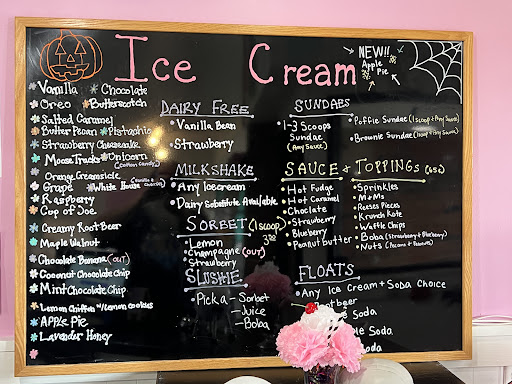 Ice Cream
NEW!!
Apple
Pie
Vanilla
Chocolate
Oreo
Butterscotch
Salted Caramel
Butter Pecan
Pistachio
Strawberry Cheesecake
Moose Tracks
Unicorn
(Cotton Candy)
Orange Creamsicle
Grape
White House
(Vanilla & Cherries)
Raspberry
Cup of Joe
Creamy Root Beer
Maple Walnut
Chocolate Banana (OUT)
Coconut Chocolate Chip
Mint Chocolate Chip
Lemon Chiffon w/lemon cookies
APPLE Pie
Lavender Honey
DAIRY FREE
Vanilla Bean
Strawberry
MILKSHAKE
Any Icecream
Dairy Substitute Available
SORBET (1 scoop)
Lemon
Champagne (OUT)
Strawberry
SLUSHIE
Pick a - Sorbet
- Juice
- Boba
SUNDAES
1-3 Scoops
Sundae
(Any Sauce)
Poffle Sundae (1 scoop + Any Sauce)
Brownie Sundae (1 scoop + Any Sauce)
SAUCE + TOPPINGS
Hot Fudge
Hot Caramel
Choclate
Strawberry
Blueberry
Peanut butter
Sprinkles
M+Ms
Reeses Pieces
Krunch Kote
Waffle Chips
Boba (Strawberry + Blueberry)
Nuts (Pecans + Peanuts)
FLOATS
Any Ice Cream + Soda Choice
tbeer
Soda
le Soda
oda